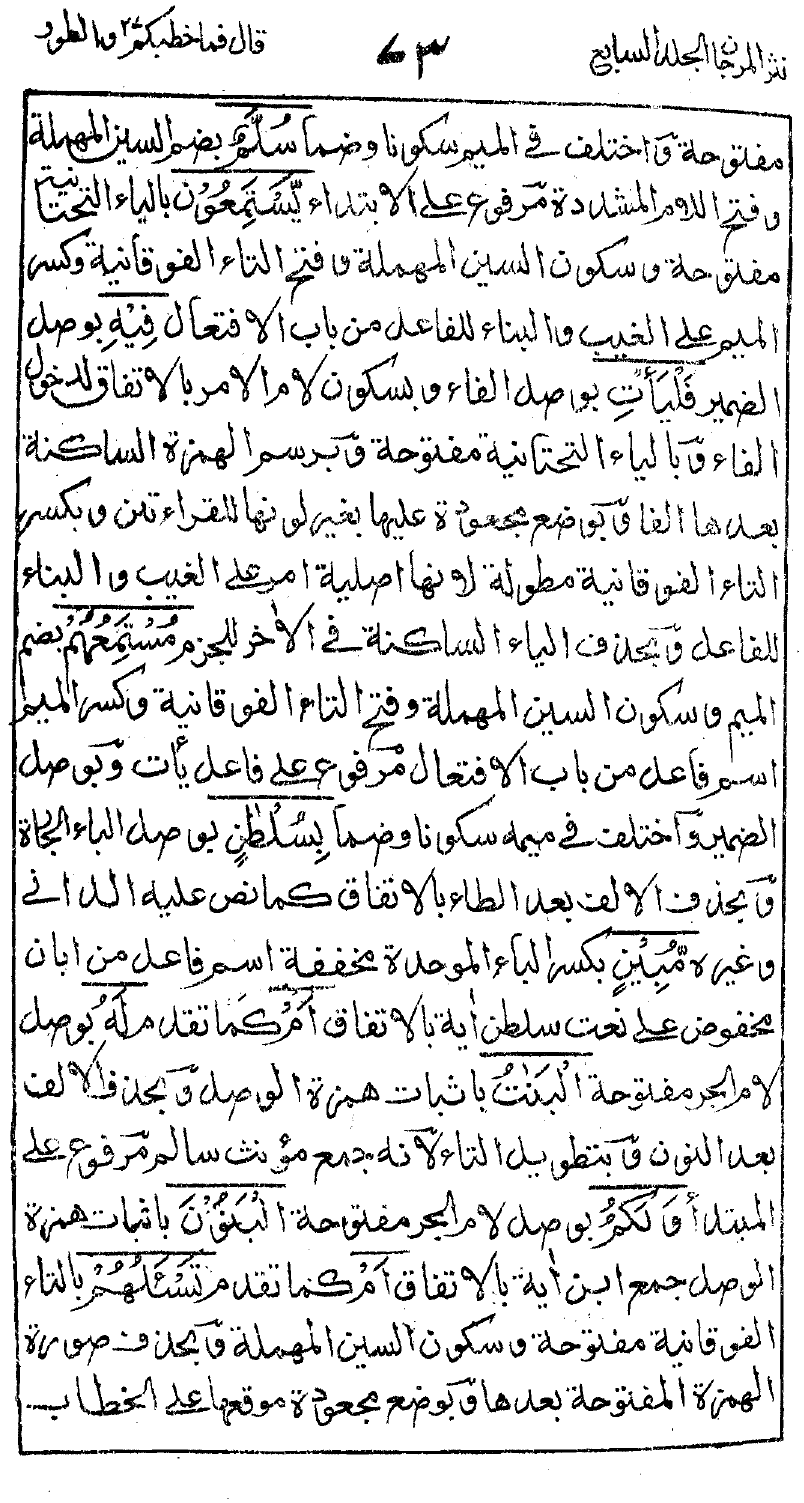 نثر المرجان المجلد السابع
٧٣
قال فما خطبكم ٢٧ والطور
مفتوحة وَّاختلف في الميم سكونا وضما سُلَّمٌ بضم السين المهملة
وفتح اللام المشددة مرفوع على الابتداء يَّسْتَمِعُوْنَ بالياء التحتانية
مفتوحة وسكون السين المهملة وفتح التاء الفوقانية وكسر
الميم على الغيب والبناء للفاعل من باب الافتعال فِيْهِ بوصل
الضمير فَلْيَأْتِ بوصل الفاء وبسكون لام الامر بالاتفاق لدخول
الفاء وَبالياء التحتانية مفتوحة وَّبرسم الهمزة الساكنة
بعدها الفا وَّبوضع مجعودة عليها بغير لونها للقراءتين وبكسر
التاء الفوقانية مطولة لانها اصلية امر على الغيب والبناء
للفاعل وَّبحذف الياء الساكنة في الاٰخر للجزم مُسْتَمِعُهُمْ بضم
الميم وسكون السين المهملة وفتح التاء الفوقانية وكسر الميم
اسم فاعل من باب الافتعال مرفوع على فاعل يأت وَّبوصل
الضمير وَّاختلف في ميمه سكونا وضما بِسُلْطٰنٍ بوصل الباء الجارة
وَّبحذف الالف بعد الطاء بالاتفاق كما نص عليه الداني
وغيره مُّبِيْنٍ بكسر الباء الموحدة مخففة اسم فاعل من ابان
مخفوض على نعت سلطن اٰية بالاتفاق اَمْ كما تقدم لَهُ بوصل
لام الجر مفتوحة الْبَنٰتُ باثبات همزة الوصل وَّبحذف الالف
بعد النون وَّبتطويل التاء لانه جمع مؤنث سالم مرفوع على
المبتدأ وَلَكُمُ بوصل لام الجر مفتوحة الْبَنُوْنَ باثبات همزة
الوصل جمع ابن اٰية بالاتفاق اَمْ كما تقدم تَسْـَٔلُهُمْ بالتاء
الفوقانية مفتوحة وسكون السين المهملة وَّبحذف صورة
الهمزة المفتوحة بعدها وَّبوضع مجعودة موقعها على الخطاب